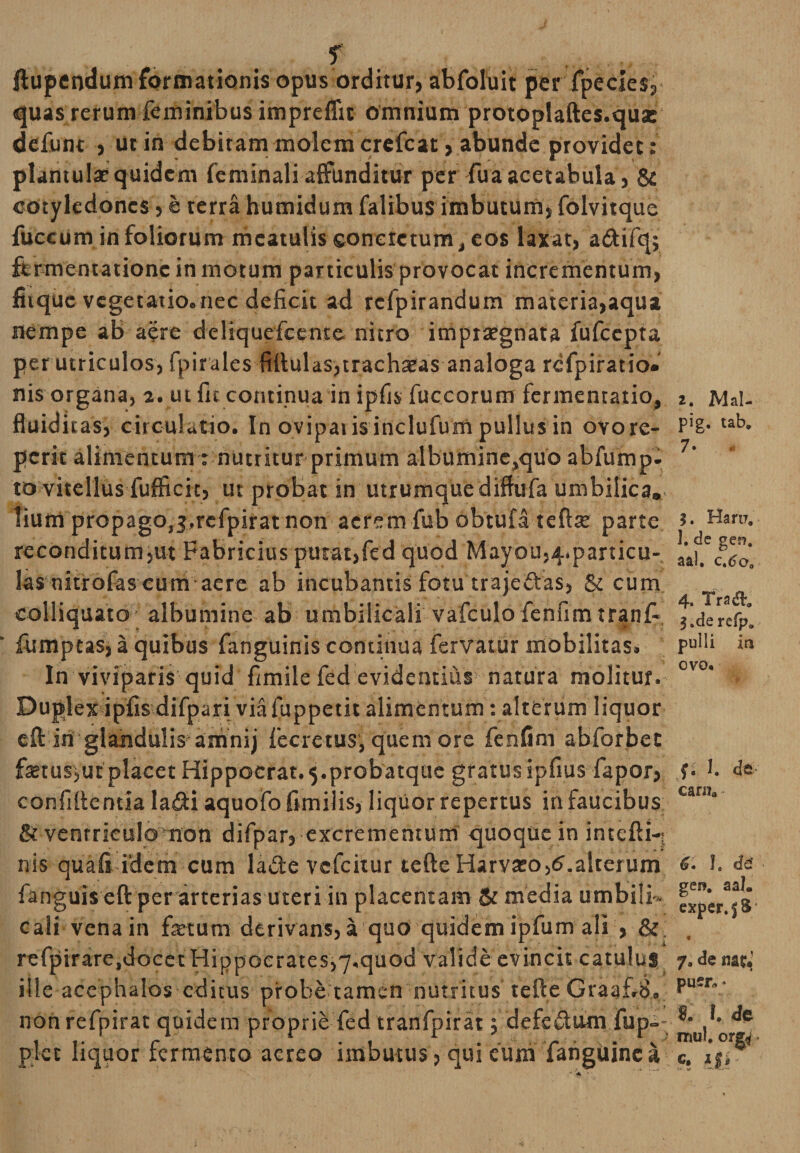 5
ſtupendum formationis opus orditur, abſoluit per ſpecies,
quas rerum ſeminibus impreſſit omnium protoplaſtes.quæ
deſunt , ut in debitam molem creſcat , abunde providet :
plantulæ quidem ſeminali affunditur per ſua acetabula , &
cotyledones , è terrâ humidum ſalibus imbutum, ſolvitque
ſuccum in foliorum meatulis concretum, eos laxat, actiſq;
fermentatione in motum particulis provocat incrementum,
fitque vegetatio.nec deficit ad reſpirandum materia,aqua
nempe ab aëre deliqueſcente nitro impræegnata ſuſcepta
per utriculos, ſpirales fiſtulas,trachæas analoga reſpiratio-
nis organa, 2. ut fit continua in ipſis ſuccorum fermentatio,
fluiditas, circulatio. In oviparis incluſum pullus in ovo re-
perit alimentum : nutritur primum albumine,quo abſump-
to vitellus ſufficit, ut probat in utrumque diffuſa umbilica-
lium propago,3.reſpirat non aerem ſub obtuſâ teſtæ parte
reconditum,ut Fabricius putat,ſed quod Mayou,4.particu-
las nitroſas cum aere ab incubantis fotu trajectas, & cum
colliquato albumine ab umbilicali vaſculo ſenſim tranſ-
ſumptas, à quibus ſanguinis continua ſervatur mobilitas.
In viviparis quid ſimile ſed evidentiùs natura molitur.
Duplex ipſis diſpari viâ ſuppetit alimentum : alterum liquor
eſt in glandulis amnij ſecretus, quem ore ſenſim abſorbet
fætus,ut placet Hippocrat.5.probatque gratus ipſius ſapor,
conſiſtentia lacti aquoſo ſimilis, liquor repertus in faucibus
& ventriculo non diſpar, excrementum quoque in inteſti-
nis quaſi idem cum lacte veſcitur teſte Harvæo,6.alterum
ſanguis eſt per arterias uteri in placentam & media umbili-
cali vena in fætum derivans, à quo quidem ipſum ali , &
reſpirare,docet Hippocrates,7.quod validè evincit catulus
ille acephalos editus probè tamen nutritus teſte Graaf.8.
non reſpirat quidem propriè ſed tranſpirat ; defectum ſup-
plet liquor fermento aereo imbutus , qui cum ſanguine à
2. Mal-
pig. tab.
7.
3. Harv.
l. de gen.
aal. c.60.
4. Tract.
3.de reſp.
pulli in
ovo.
5. l. de
carn.
6. l. de
gen. aal.
exper.58
7. de nat.
puer.
8. l. de
mul. org.
c. 15.